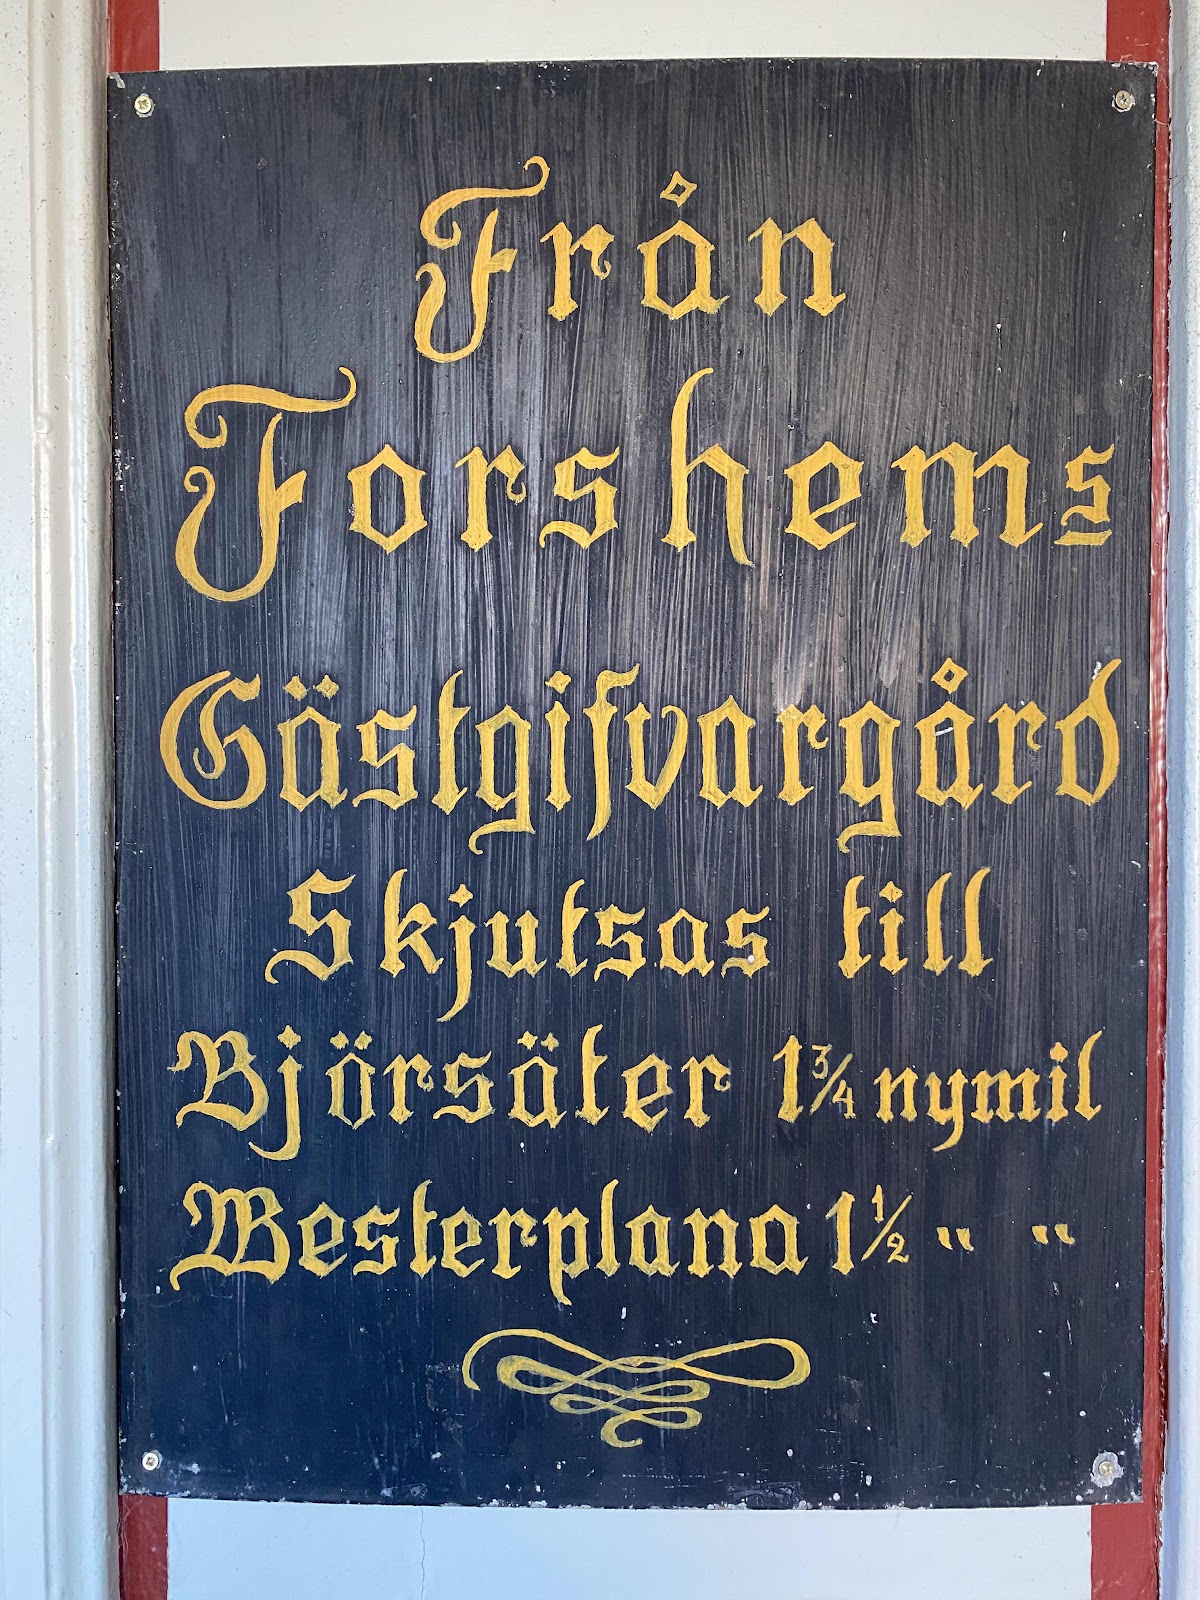 Från
Forshems
Gästgifvargård
Skjutsas till
Björsäter 1 3/4 nymil
Westerplana 1 1/2 " "